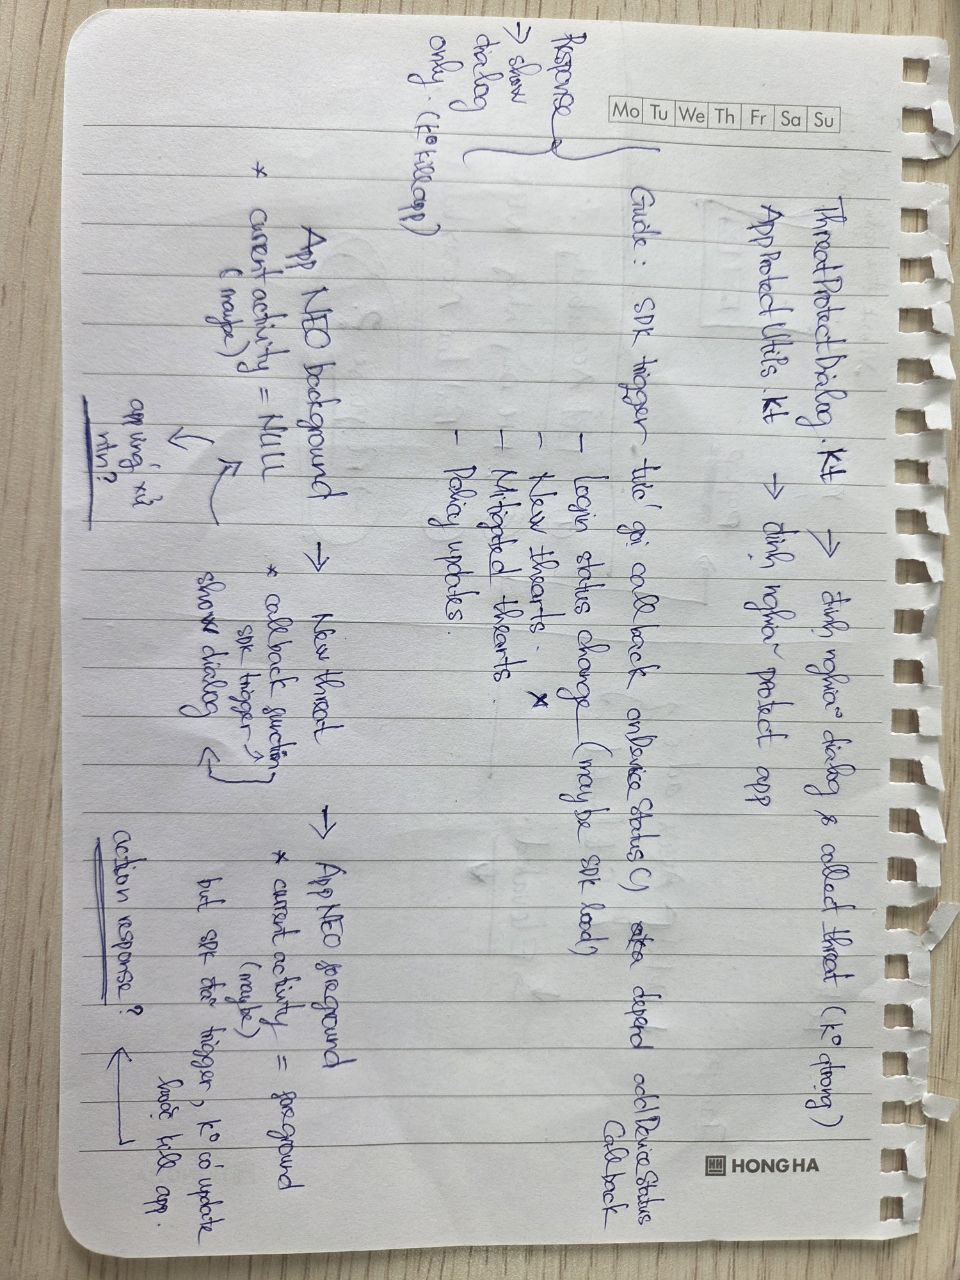 ThreatProtectDialog.kt → định nghĩa dialog & collect threat (k° qtrọng)
AppProtectUtils.kt → định nghĩa protect app
HONGHA
Mo Tu We Th Fr Sa Su
Guide: SDK trigger tức gọi callback onDeviceStatus() aka depend addDeviceStatus
Callback
- Login status change (maybe SDK load)
- New thearts. *
- Mitigated thearts.
- Policy updates.
Response
→ show
dialog
only. (k° kill app)
App NEO background → New threat → App NEO foreground
* current activity = NULL
(maybe)
* callback function
SDK trigger
show dialog
* current activity = foreground
(maybe)
but SDK đã trigger, k° có update
hoặc kill app.
app ứng xử
ntn?
action response?